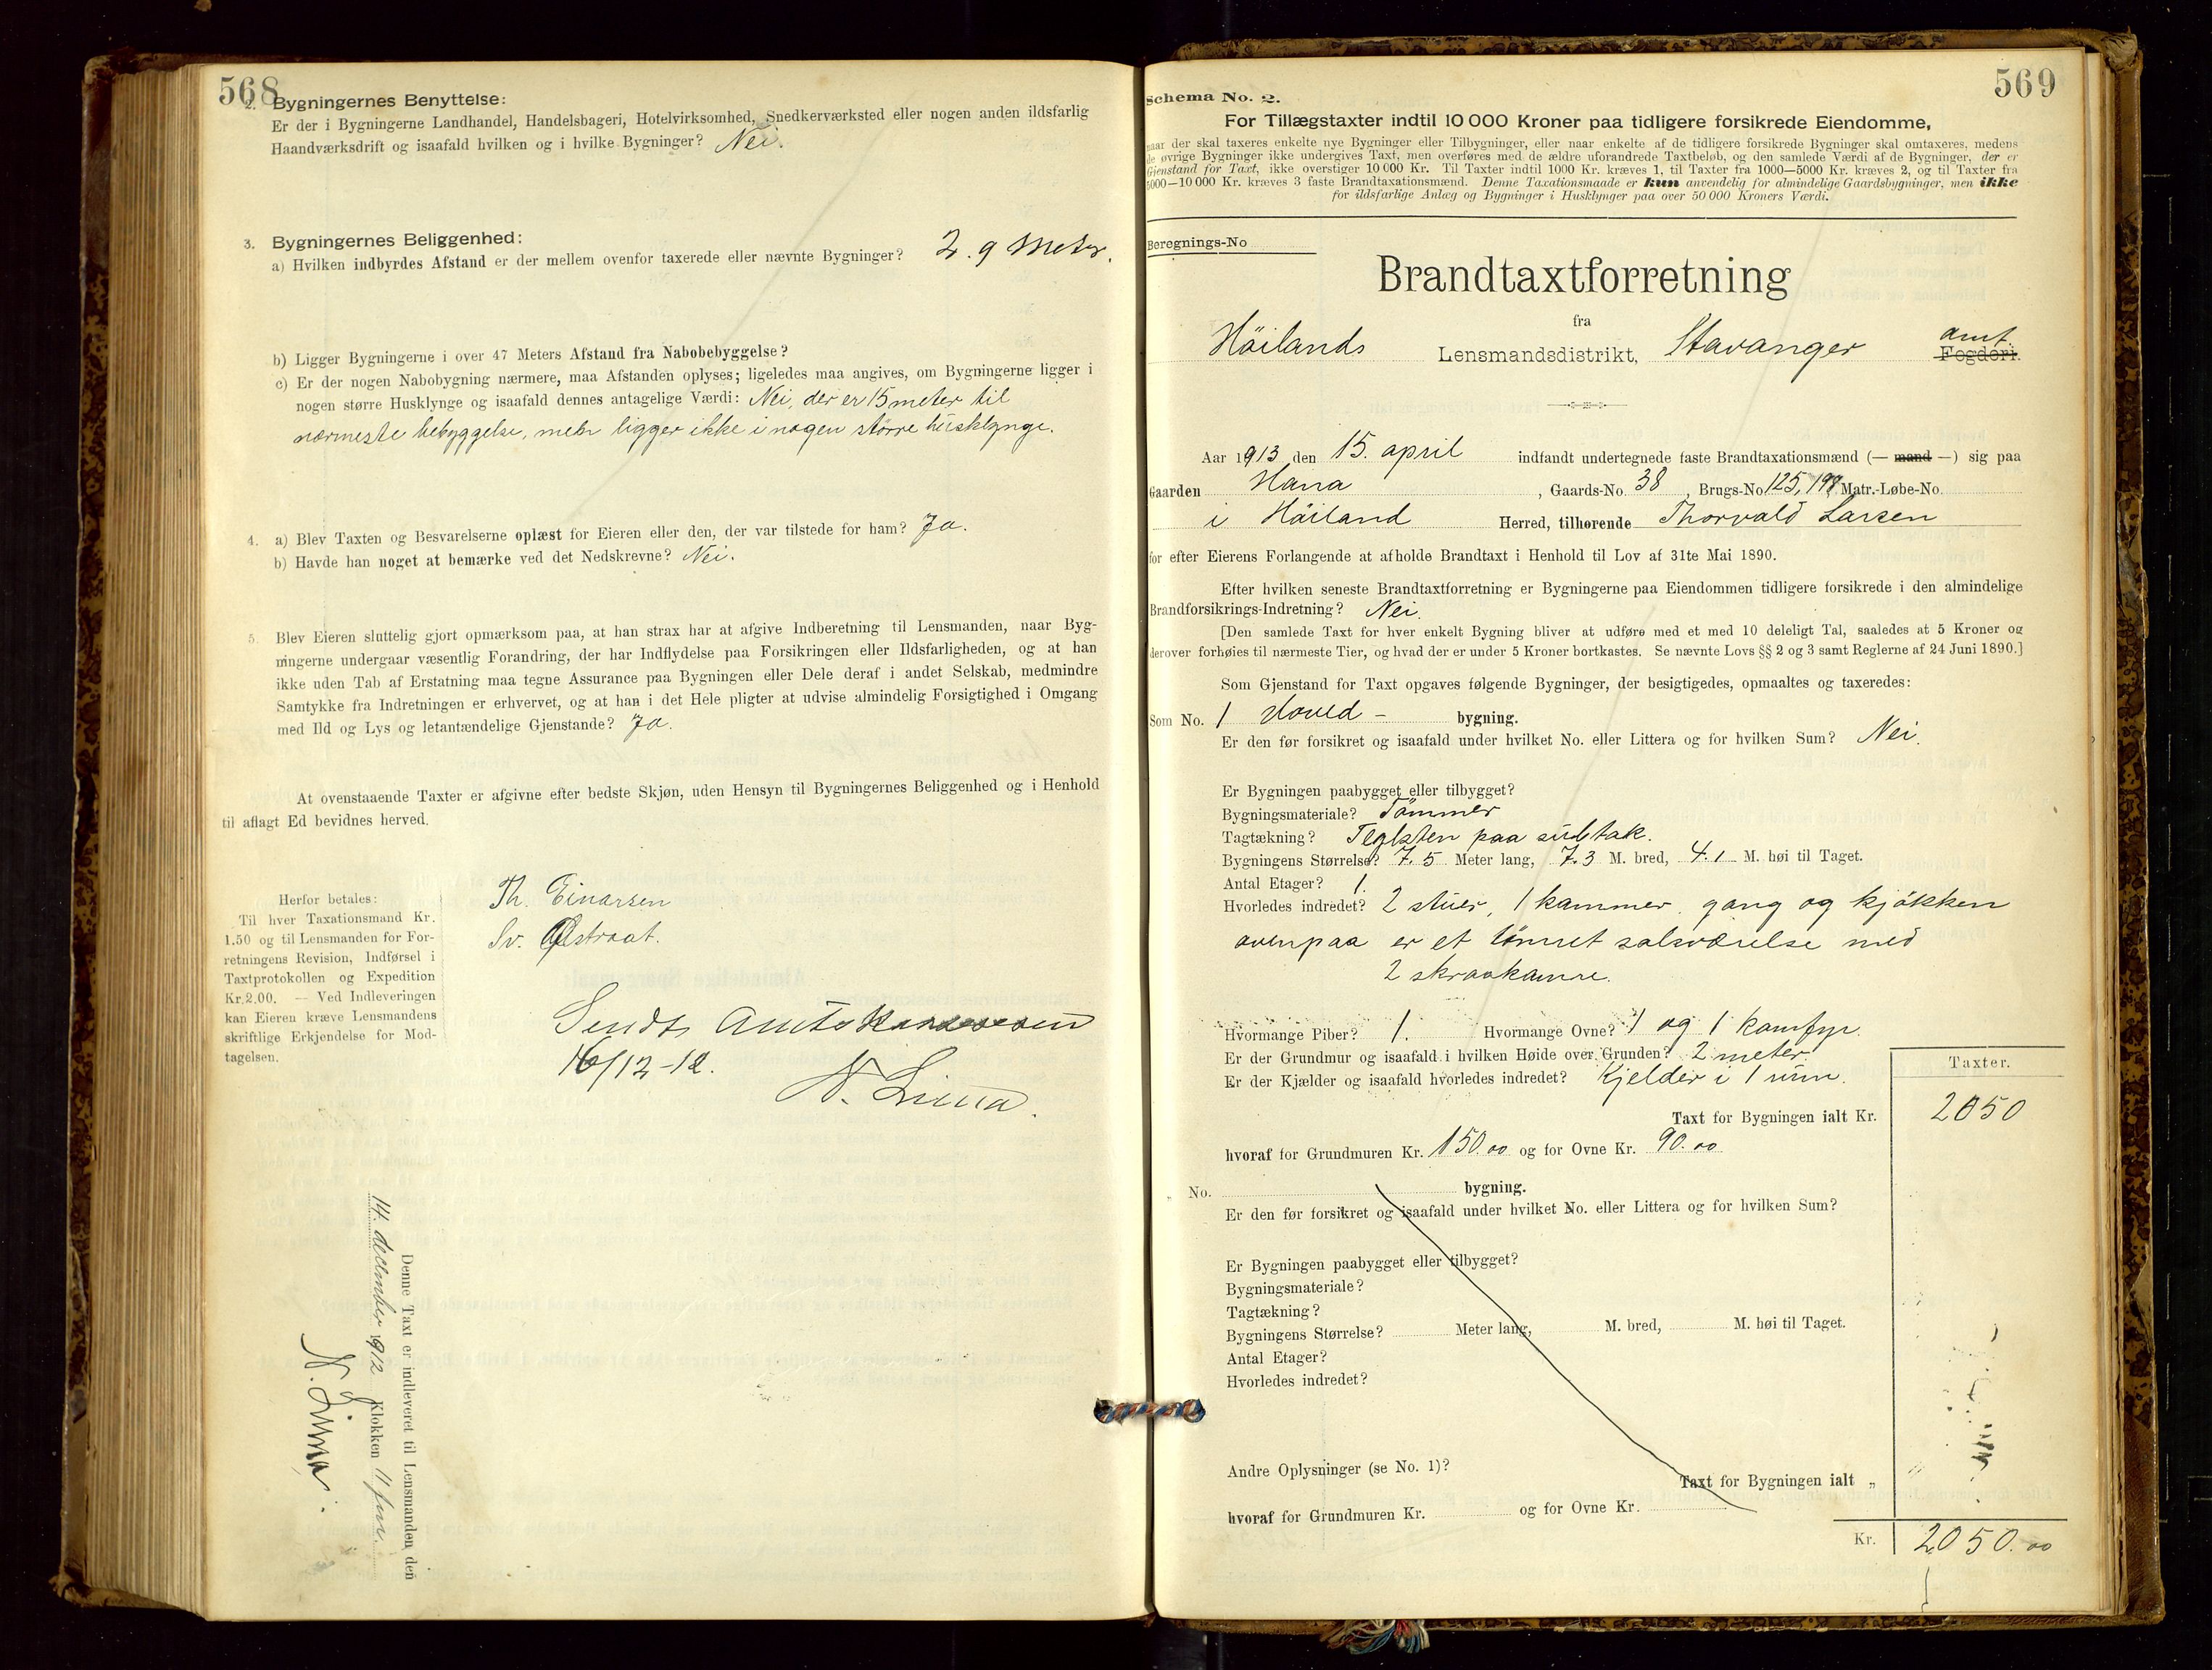 568
2. Bygningernes Benyttelse:
Er der i Bygningerne Landhandel, Handelsbageri, Hotelvirksomhed, Snedkerværksted eller nogen anden ildsfarlig
Haandværksdrift og isaafald hvilken og i hvilke Bygninger? Nei.
3. Bygningernes Beliggenhed:
a) Hvilken indbyrdes Afstand er der mellem ovenfor taxerede eller nævnte Bygninger? 2.9 Meter.
b) Ligger Bygningerne i over 47 Meters Afstand fra Nabobebyggelse?
c) Er der nogen Nabobygning nærmere, maa Afstanden oplyses; ligeledes maa angives, om Bygningerne ligger i
nogen større Husklynge og isaafald dennes antagelige Værdi: Nei, der er 15 meter til
nærmeste bebyggelse, men ligger ikke i nogen större husklynge.
4. a) Blev Taxten og Besvarelserne oplæst for Eieren eller den, der var tilstede for ham? Ja.
b) Havde han noget at bemærke ved det Nedskrevne? Nei.
5. Blev Eieren sluttelig gjort opmærksom paa, at han strax har at afgive Indberetning til Lensmanden, naar Byg-
ningerne undergaar væsentlig Forandring, der har Indflydelse paa Forsikringen eller Ildsfarligheden, og at han
ikke uden Tab af Erstatning maa tegne Assurance paa Bygningen eller Dele deraf i andet Selskab, medmindre
Samtykke fra Indretningen er erhvervet, og at han i det Hele pligter at udvise almindelig Forsigtighed i Omgang
med Ild og Lys og letantændelige Gjenstande? Ja.
At ovenstaaende Taxter er afgivne efter bedste Skjøn, uden Hensyn til Bygningernes Beliggenhed og i Henhold
til aflagt Ed bevidnes herved.
Herfor betales:
Til hver Taxationsmand Kr.
1.50 og til Lensmanden for For-
retningens Revision, Indførsel i
Taxtprotokollen og Expedition
Kr. 2.00. — Ved Indleveringen
kan Eieren kræve Lensmandens
skriftlige Erkjendelse for Mod-
tagelsen.
Th. Einarsen
Sv. Østraat.
Sendt Amtskassereren
16/12-12.
N. Lima.
Denne Taxt er indleveret til Lensmanden den
14. december 1912 Klokken 11 fm.
N. Lima.
569
Schema No. 2.
For Tillægstaxter indtil 10 000 Kroner paa tidligere forsikrede Eiendomme,
naar der skal taxeres enkelte nye Bygninger eller Tilbygninger, eller naar enkelte af de tidligere forsikrede Bygninger skal omtaxeres, medens
de øvrige Bygninger ikke undergives Taxt, men overføres med de ældre uforandrede Taxtbeløb, og den samlede Værdi af de Bygninger, der er
Gjenstand for Taxt, ikke overstiger 10 000 Kr. Til Taxter indtil 1000 Kr. kræves 1, til Taxter fra 1000—5000 Kr. kræves 2, og til Taxter fra
5000—10 000 Kr. kræves 3 faste Brandtaxationsmænd. Denne Taxationsmaade er kun anvendelig for almindelige Gaardsbygninger, men ikke
for ildsfarlige Anlæg og Bygninger i Husklynger paa over 50 000 Kroners Værdi.
Beregnings-No
Brandtaxtforretning
fra
Höilands Lensmandsdistrikt, Stavanger amt. Fogderi.
Aar 1913 den 15. april indfandt undertegnede faste Brandtaxationsmænd (— mand —) sig paa
Gaarden Hana, Gaards-No. 38, Brugs-No 125, 198 Matr.-Løbe-No.
i Höiland Herred, tilhørende Thorvald Larsen
for efter Eierens Forlangende at afholde Brandtaxt i Henhold til Lov af 31te Mai 1890.
Efter hvilken seneste Brandtaxtforretning er Bygningerne paa Eiendommen tidligere forsikrede i den almindelige
Brandforsikrings-Indretning? Nei.
[Den samlede Taxt for hver enkelt Bygning bliver at udføre med et med 10 deleligt Tal, saaledes at 5 Kroner og
derover forhøies til nærmeste Tier, og hvad der er under 5 Kroner bortkastes. Se nævnte Lovs §§ 2 og 3 samt Reglerne af 24 Juni 1890.]
Som Gjenstand for Taxt opgaves følgende Bygninger, der besigtigedes, opmaaltes og taxeredes:
Som No. 1 Hoved- bygning.
Er den før forsikret og isaafald under hvilket No. eller Littera og for hvilken Sum? Nei.
Er Bygningen paabygget eller tilbygget?
Bygningsmateriale? Tömmer
Tagtækning? Teglsten paa sutak.
Bygningens Størrelse? 7.5 Meter lang, 7.3 M. bred, 4.1 M. høi til Taget.
Antal Etager? 1.
Hvorledes indredet? 2 stuer, 1 kammer, gang og kjökken
ovenpaa er et tömret salsværelse med
2 skraakamre.
Hvormange Piber? 1. Hvormange Ovne? 1 og 1 komfyr.
Er der Grundmur og isaafald i hvilken Høide over Grunden? 2 meter.
Er der Kjælder og isaafald hvorledes indredet? Kjelder i 1 rum.
Taxter.
Taxt for Bygningen ialt Kr. 2050
hvoraf for Grundmuren Kr. 150.00 og for Ovne Kr. 90.00
„ No. bygning.
Er den før forsikret og isaafald under hvilket No. eller Littera og for hvilken Sum?
Er Bygningen paabygget eller tilbygget?
Bygningsmateriale?
Tagtækning?
Bygningens Størrelse? Meter lang, M. bred, M. høi til Taget.
Antal Etager?
Hvorledes indredet?
Andre Oplysninger (se No. 1)?
Taxt for Bygningen ialt „
hvoraf for Grundmuren Kr. og for Ovne Kr.
Kr. 2050.00